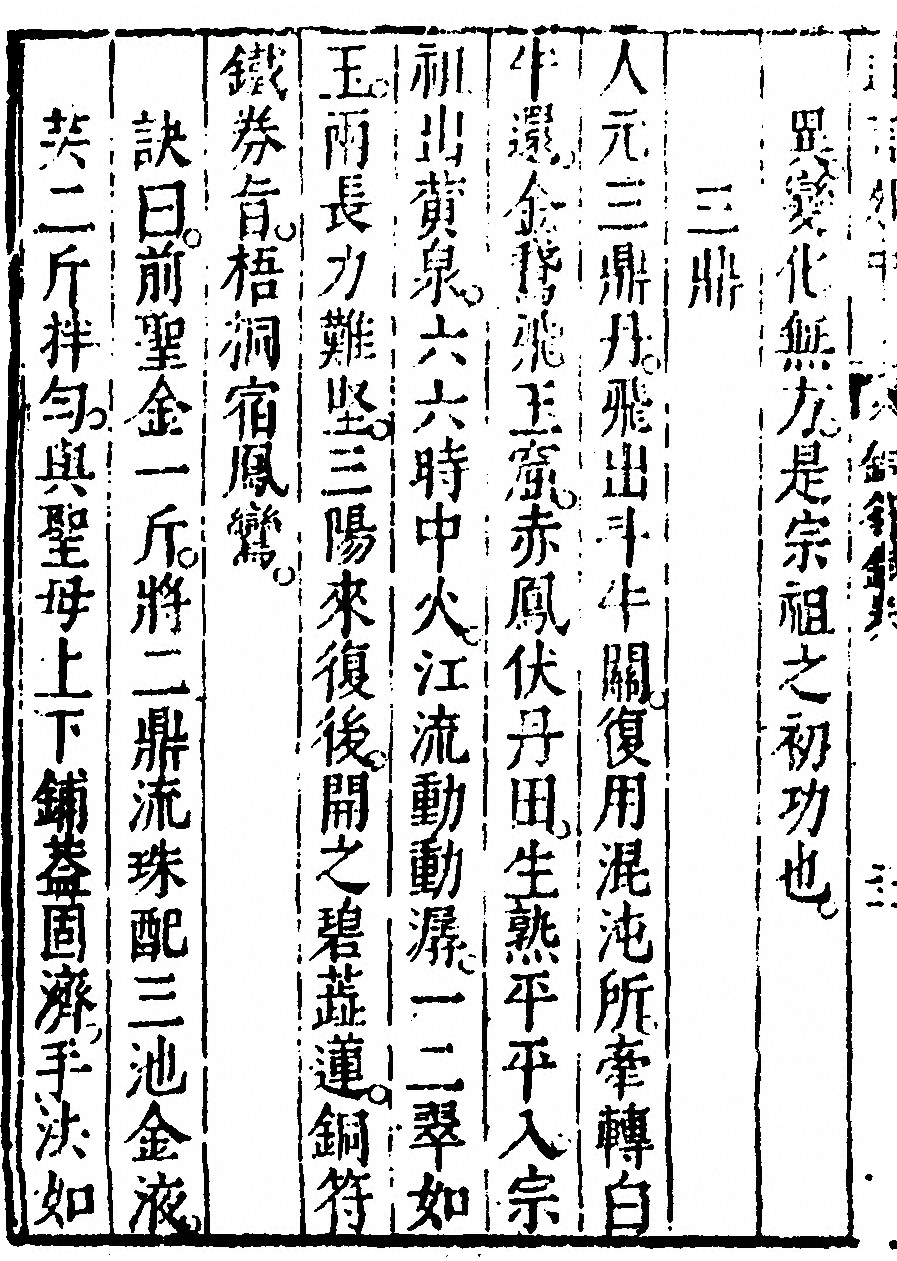 異變化無方。是宗祖之初功也。
三鼎
人元三鼎丹。飛出斗牛關。復用混沌所。牽轉白
牛還。金鵞飛玉窟。赤鳳伏丹田。生熟平平入。宗
祖出黃泉。六六時中火。江流動動潺。一二翠如
玉。兩長力難堅。三陽來復後。開之碧蕋蓮。銅符
鐵券旨。梧桐宿鳳鸞。
訣曰。前聖金一斤。將二鼎流珠配三池金液。
芡二斤拌勻。與聖母上下鋪蓋固濟。手法如